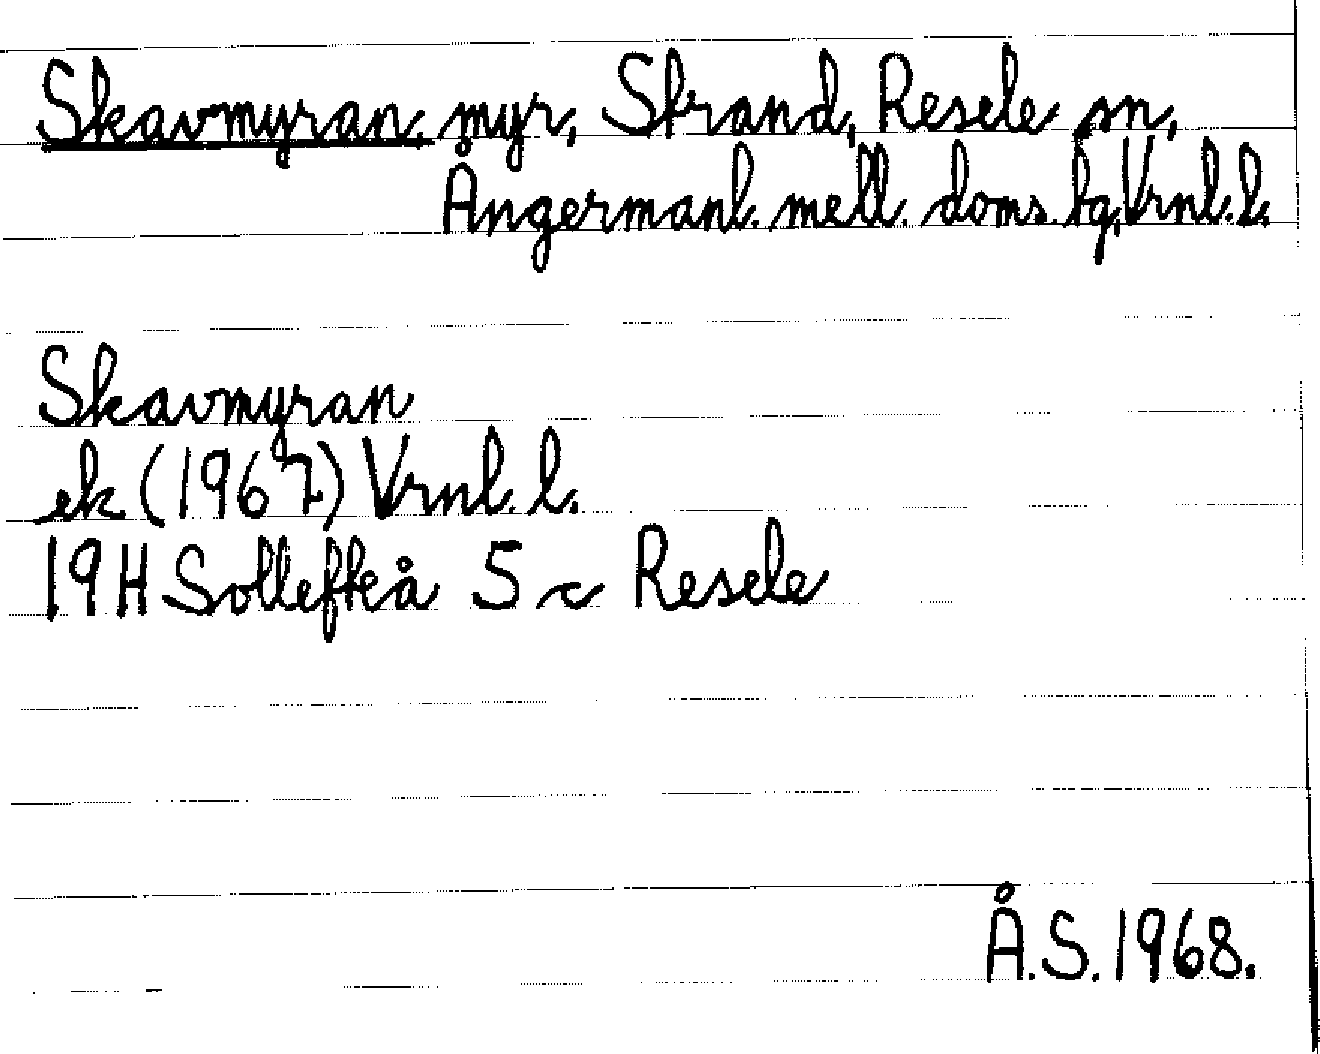 Skavmyran, myr, Strand, Resele sn,
Ångermanl. mell. doms. tg, Vrnl. l.
Skavmyran
ek (1967) Vrnl. l.
19H Sollefteå 5 c Resele
Å.S. 1968.